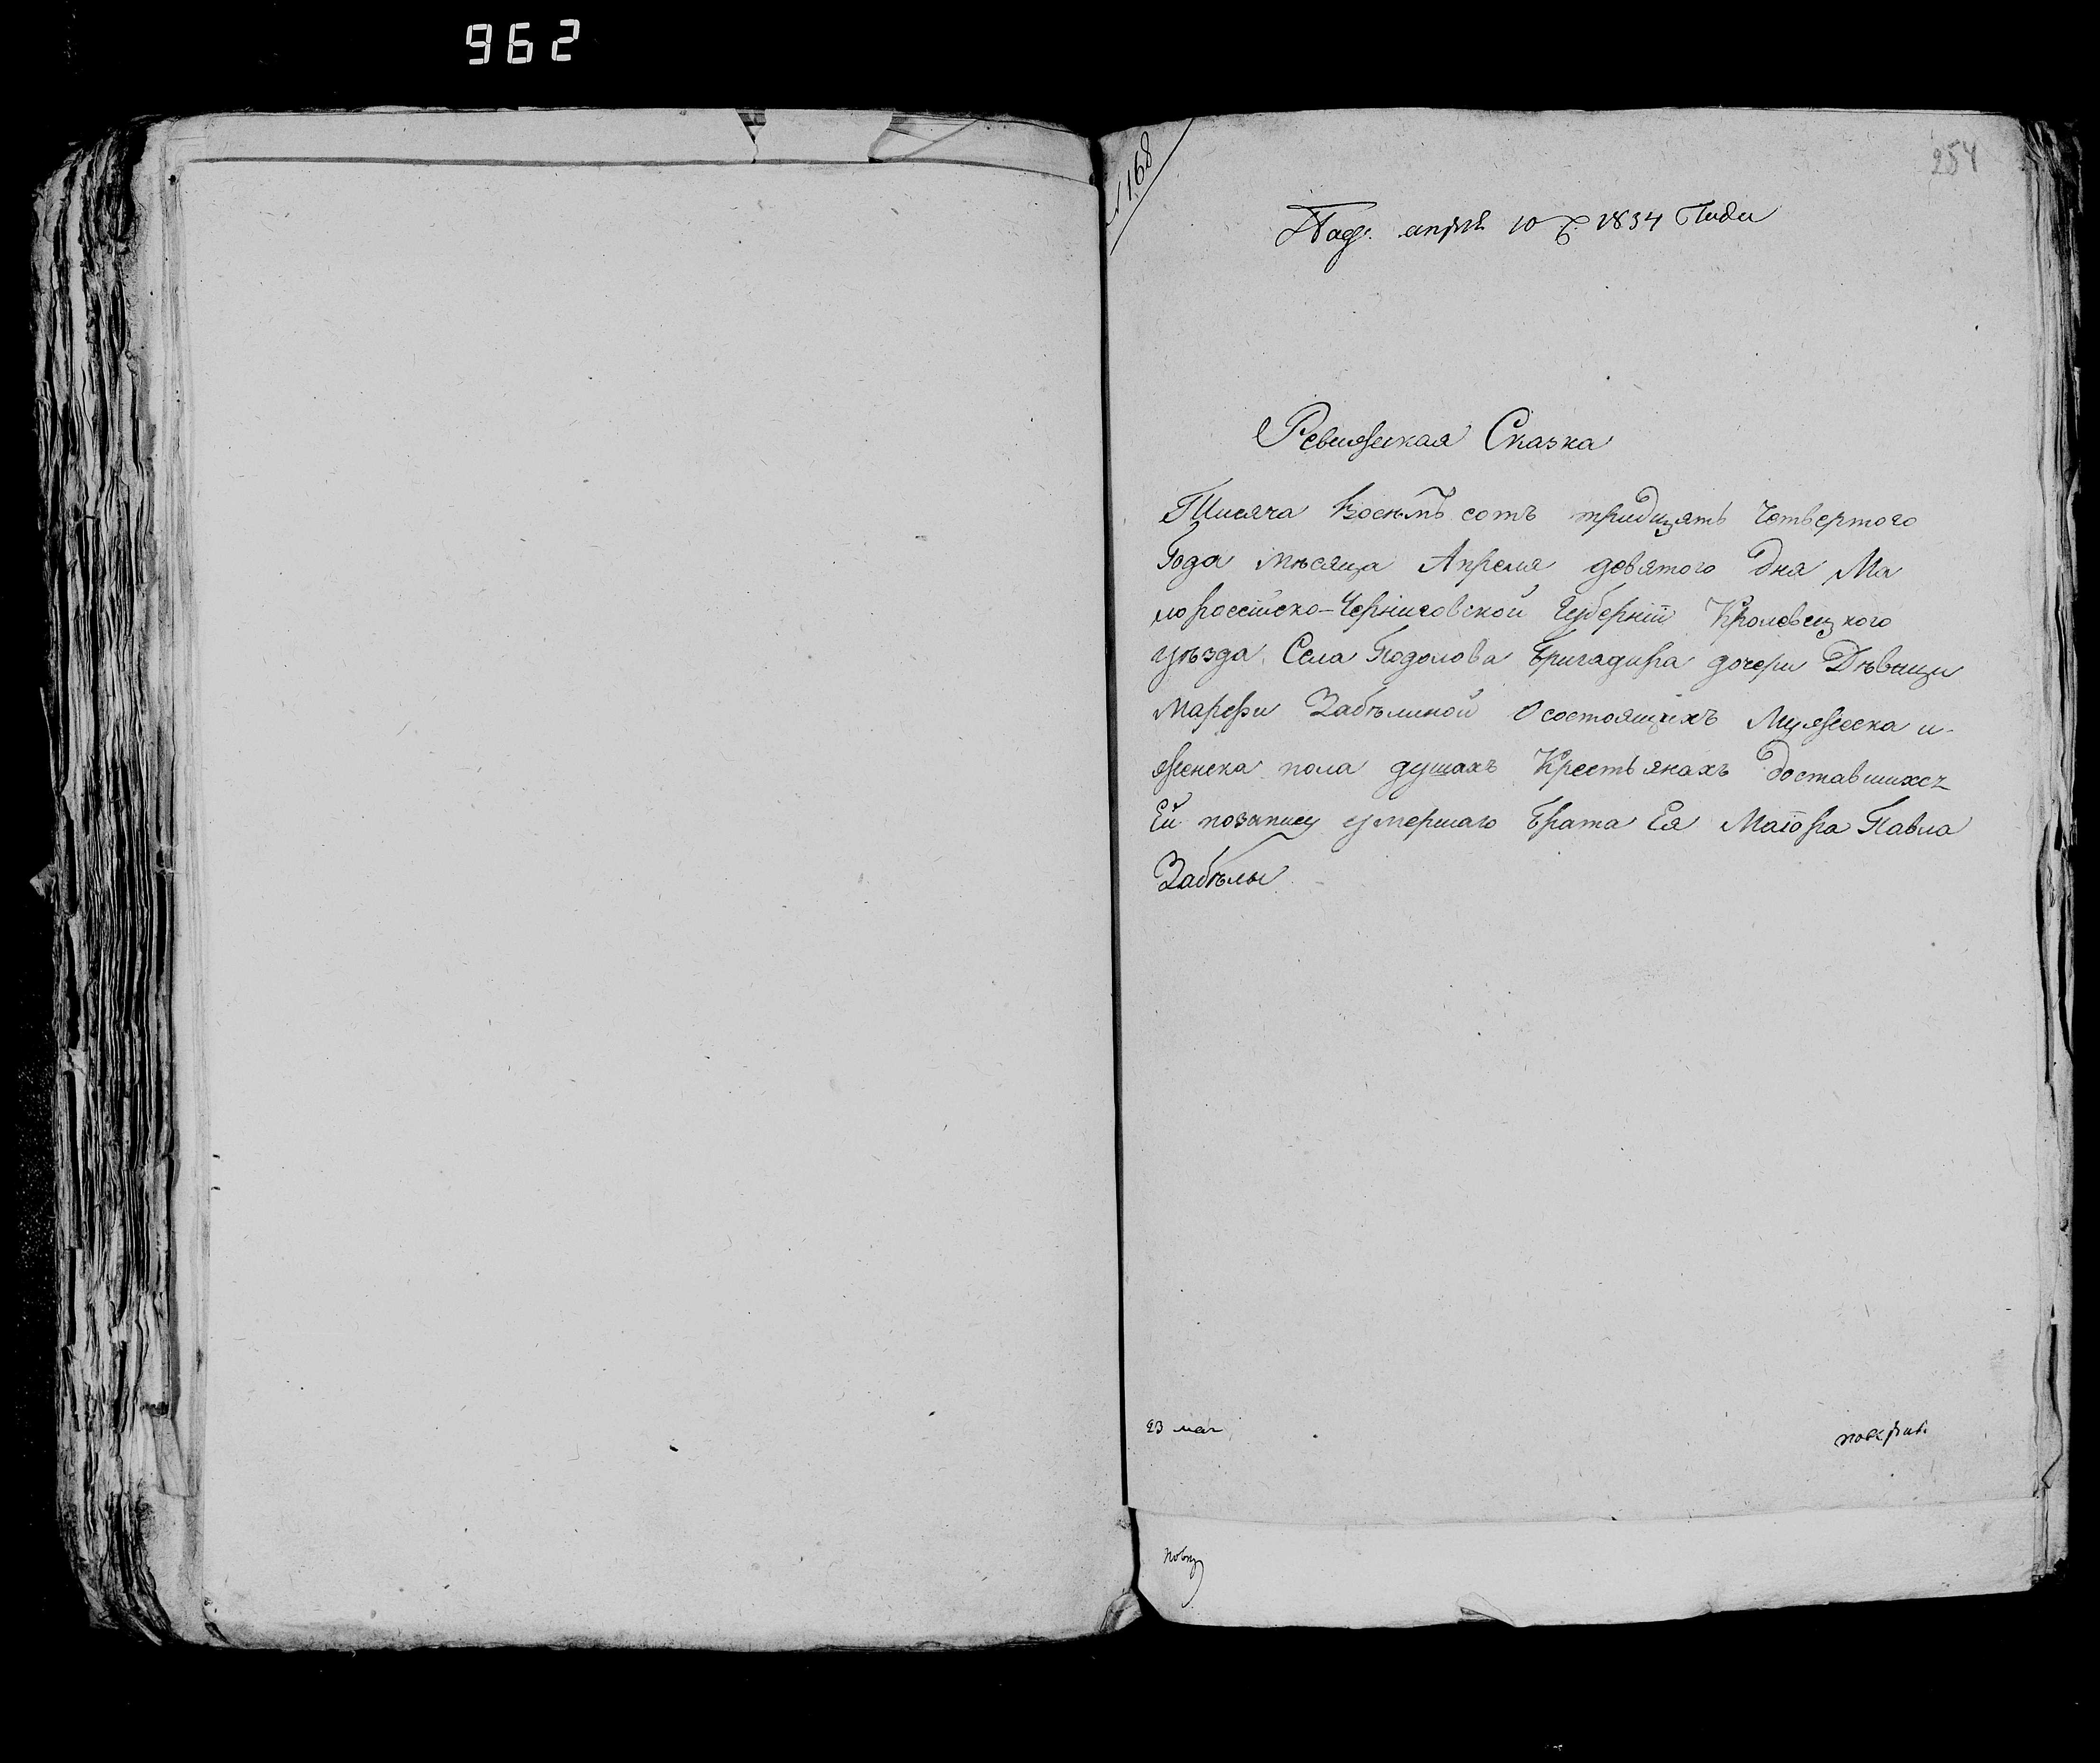 962
1168
254
Под. апрѣля 10 д. 1834 Года
Ревизская Сказка
Тысяча Восемъ сотъ тридцять Четвертого
Года мѣсяца Апреля девятого Дня Ма
лороссійско-Черниговской Губерніи Кролевецкого
уѣзда Села Подолова Бригадира дочери Дѣвыци
Марфы Забѣлиной О состоящихъ Мужеска и
женска пола душахъ Крестьянахъ Доставшихся
Ей позапису умершаго Брата Ея Маіора Павла
Забѣлы
23 мая